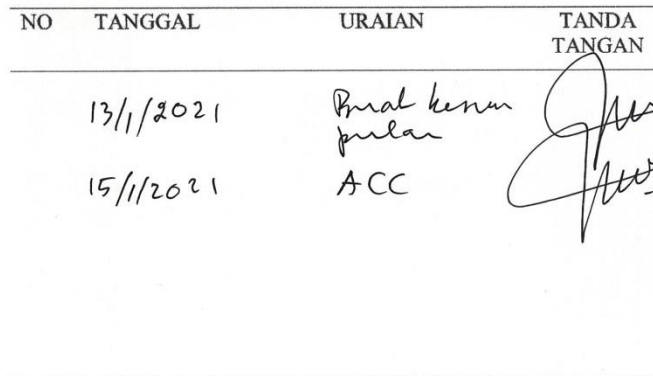 NO TANGGAL URAIAN TANDA
TANGAN
13/1/2021 Buat kesim
pulan
15/1/2021 ACC